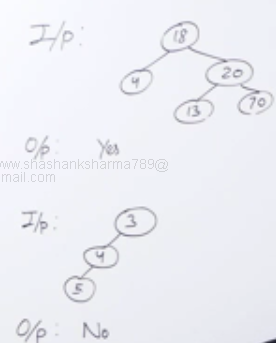 I/p:
18
4
20
13
70
O/p: Yes
www.shashanksharma789@
mail.com
I/p:
3
4
5
O/p: No